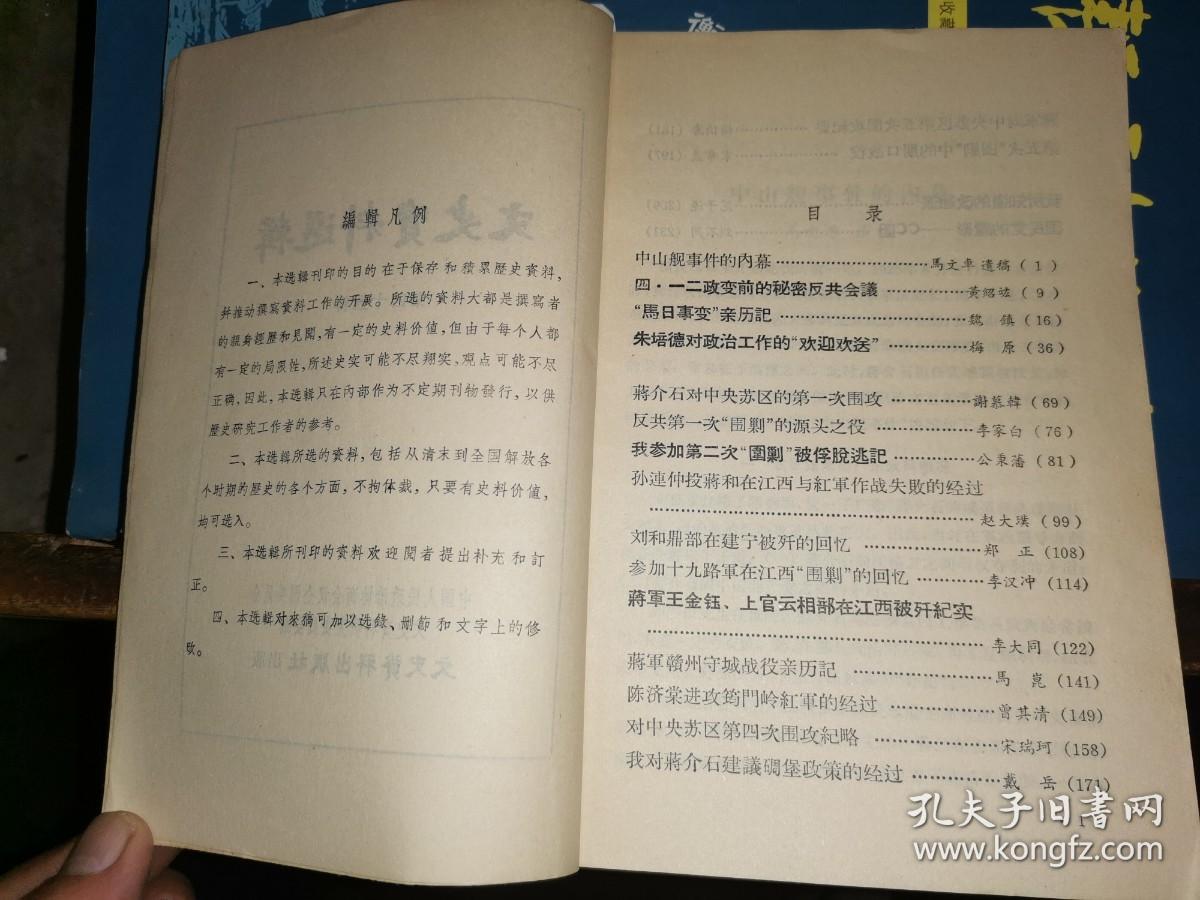 編輯凡例
一、本选輯刊印的目的在于保存和積累歷史資料,
幷推动撰寫資料工作的开展。所选的資料大都是撰寫者
的親身經歷和見聞,有一定的史料价值,但由于每个人都
有一定的局限性,所述史实可能不尽翔实,观点可能不尽
正确,因此,本选輯只在內部作为不定期刊物發行,以供
歷史研究工作者的参考。
二、本选輯所选的資料,包括从清末到全国解放各
个时期的歷史的各个方面,不拘体裁,只要有史料价值,
均可选入。
三、本选輯所刊印的資料欢迎閱者提出补充和訂
正。
四、本选輯对來稿可加以选錄、删節和文字上的修
改。
目 录
中山舰事件的內幕……………………………馬文車 遺稿 ( 1 )
四·一二政变前的秘密反共会議 ……………黃紹竑 ( 9 )
“馬日事变”亲历記 ……………………………魏 鎮 (16)
朱培德对政治工作的“欢迎欢送” ……………梅 原 (36)
蔣介石对中央苏区的第一次围攻 ……………謝慕韓 (69)
反共第一次“围剿”的源头之役 ………………李家白 (76)
我参加第二次“圍剿”被俘脫逃記 ……………公秉藩 (81)
孙連仲投蔣和在江西与紅軍作战失敗的经过
………………………………………………赵大璞 (99)
刘和鼎部在建宁被歼的回忆 …………………郑 正 (108)
参加十九路軍在江西“围剿”的回忆 …………李汉冲 (114)
蔣軍王金钰、上官云相部在江西被歼紀实
………………………………………………李大同 (122)
蔣軍贛州守城战役亲历記 ……………………馬 崑 (141)
陈济棠进攻筠門岭紅軍的经过 ………………曾其清 (149)
对中央苏区第四次围攻紀略 …………………宋瑞珂 (158)
我对蔣介石建議碉堡政策的经过 ……………戴 岳 (171)
1
孔夫子旧书网
www.kongfz.com